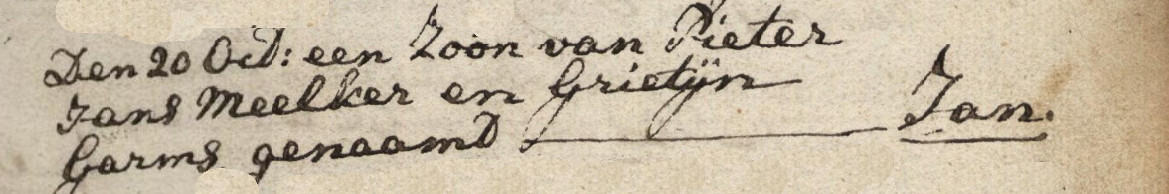 Den 20 Oct: een Zoon van Pieter
Jans Meelker en Grietijn
Garms genaamd Jan.